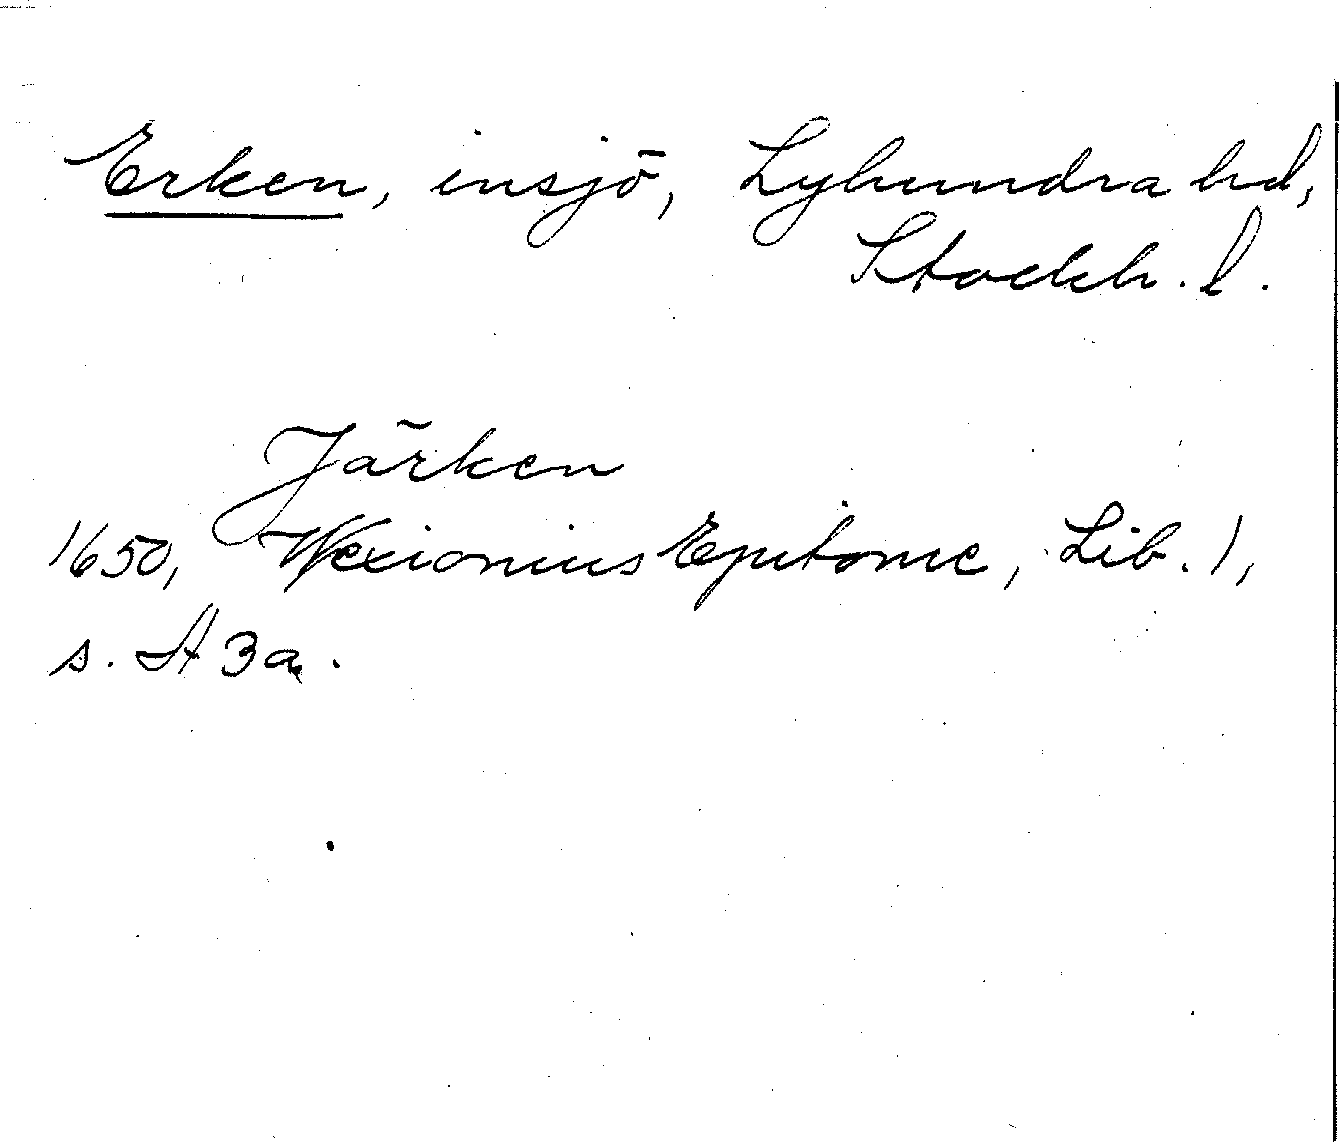 Erken, insjö, Lyhundra hd,
Stockh. l.
Järken
1650, Wexionius Epitome, Lib. 1,
s. A 3a.